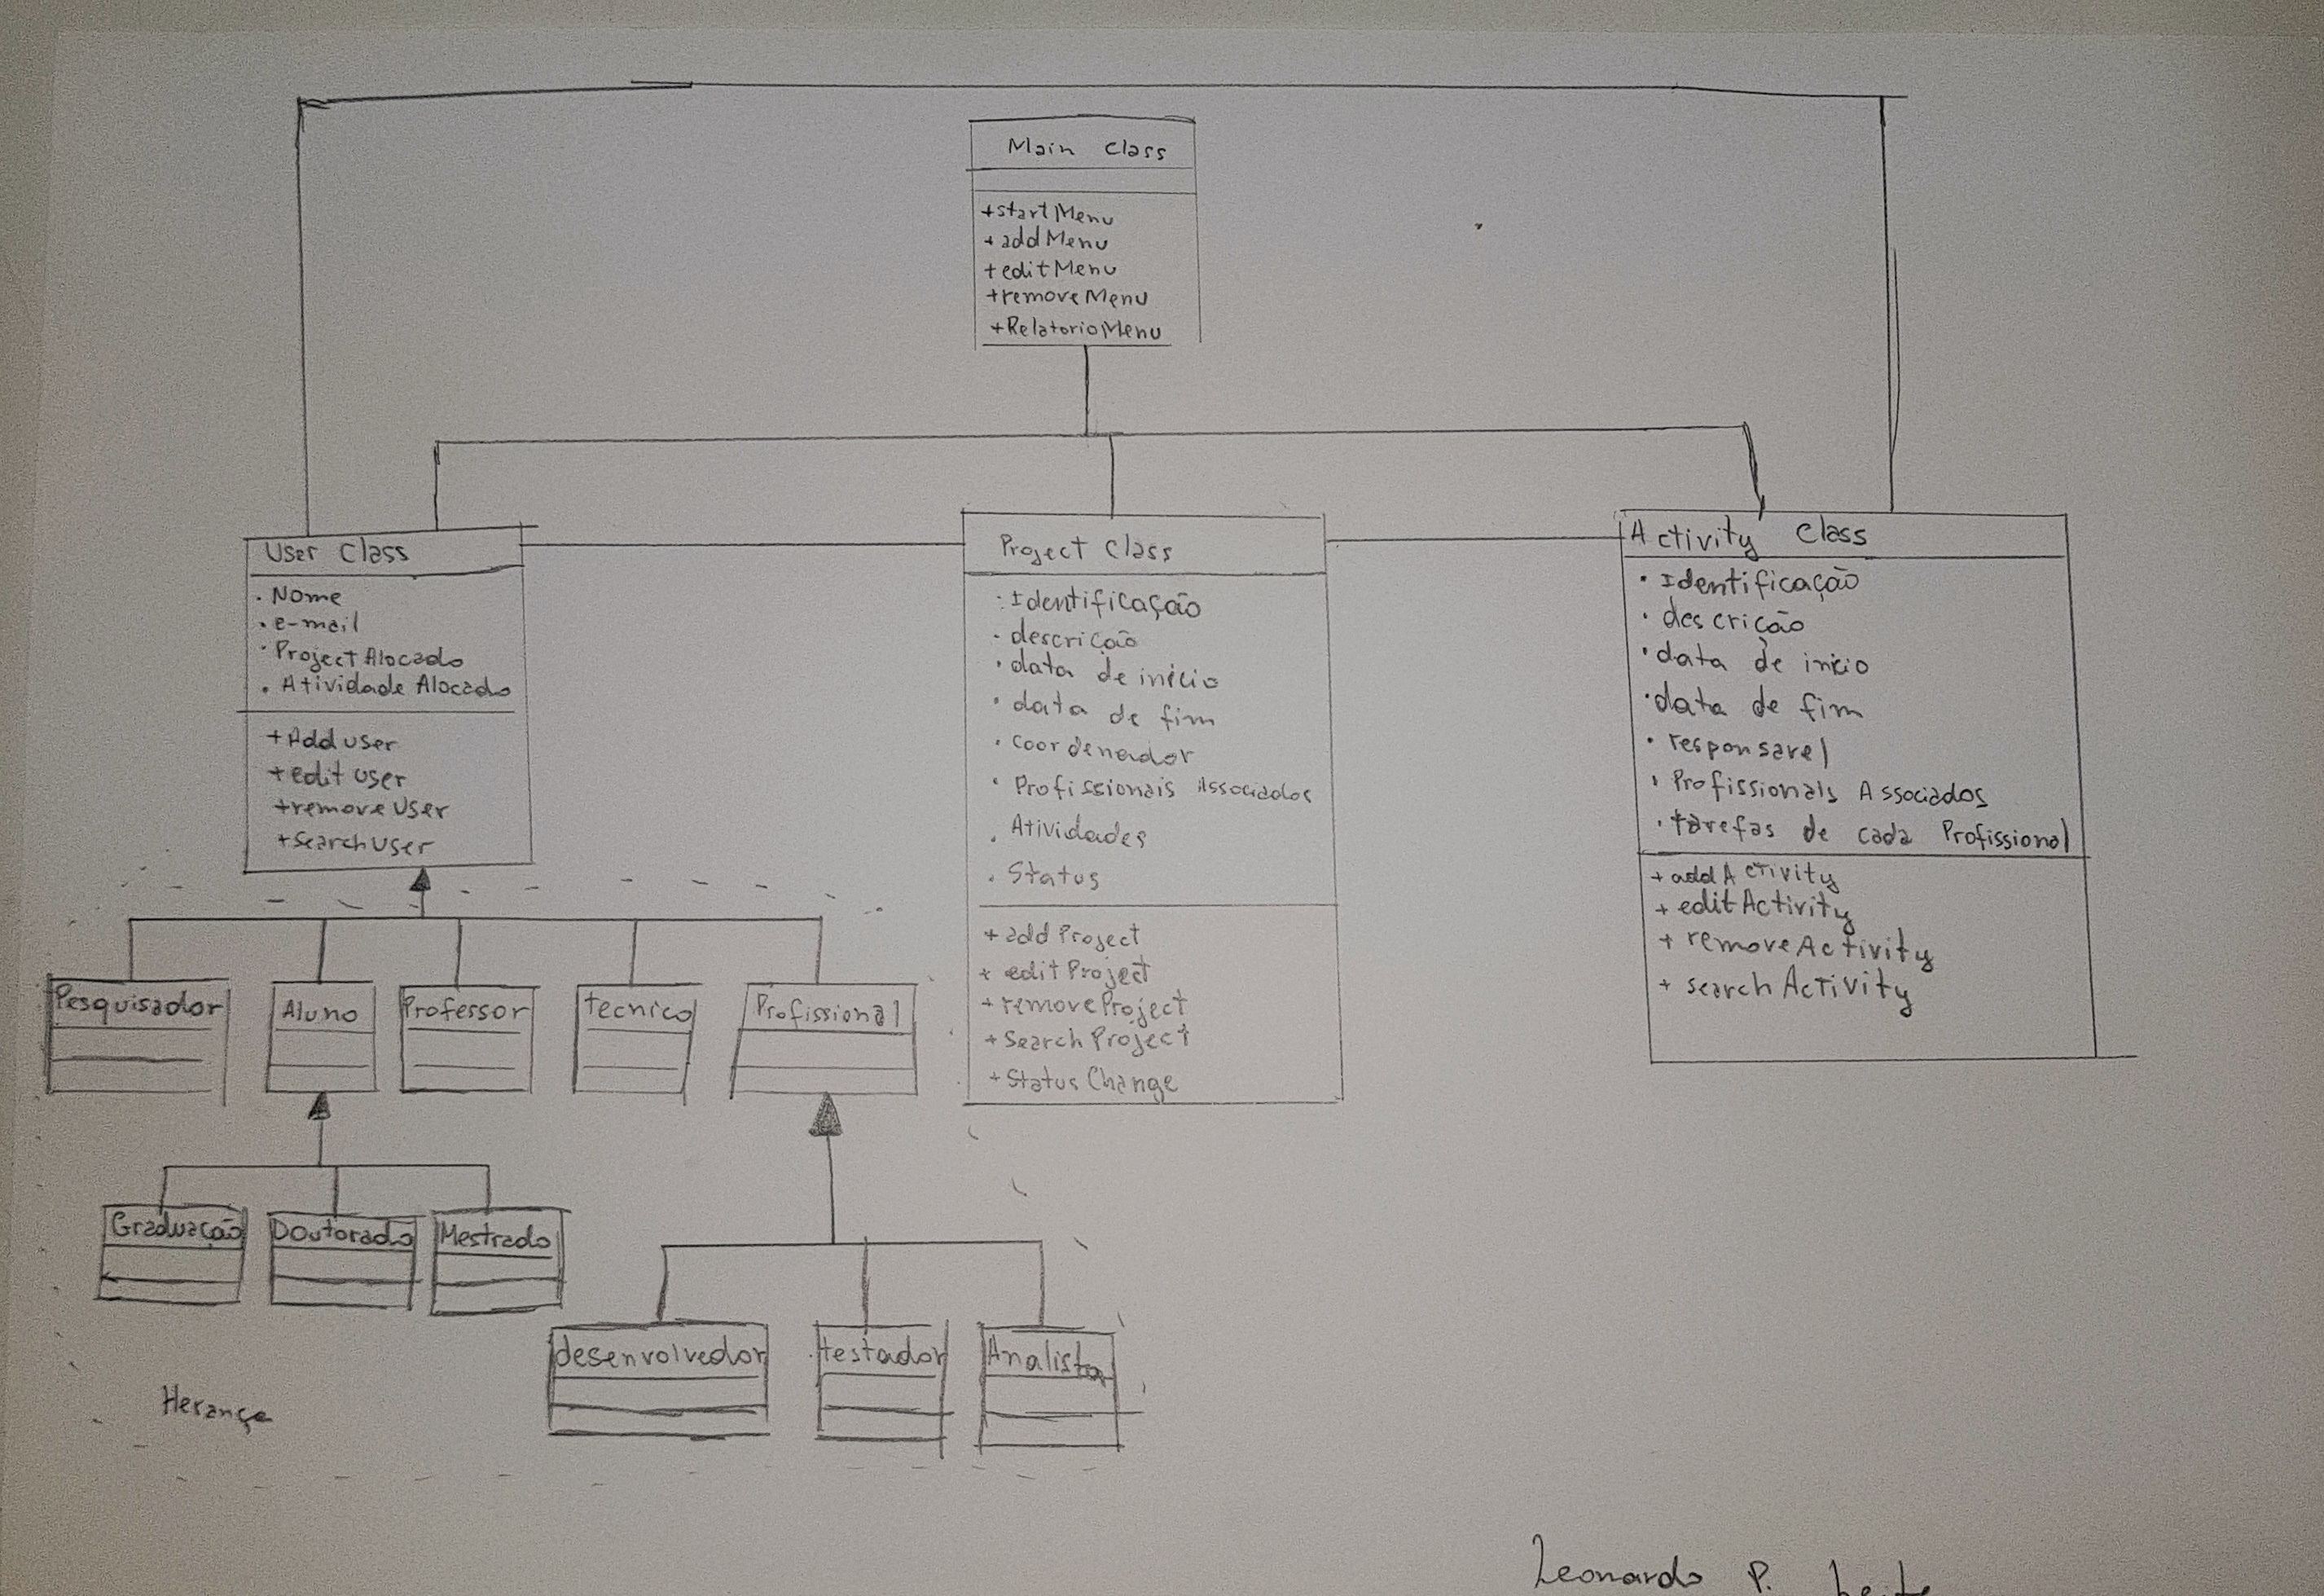 Main Class
+startMenu
+addMenu
+editMenu
+removeMenu
+RelatorioMenu
User Class
. Nome
. e-mail
. Project Alocado
. Atividade Alocado
+Add user
+edit user
+removeUser
+SearchUser
Project Class
. Identificação
. descrição
. data de início
. data de fim
. coordenador
. Profissionais Associados
. Atividades
. Status
+ add Project
+ edit Project
+ removeProject
+ Search Project
+ Status Change
Activity Class
. Identificação
. descrição
. data de início
. data de fim
. responsavel
. Profissionais Associados
. tarefas de cada Profissional
+ addActivity
+ editActivity
+ removeActivity
+ searchActivity
Pesquisador
Aluno
Professor
tecnico
Profissional
Graduação
Doutorado
Mestrado
desenvolvedor
testador
Analista
Herança
Leonardo P.